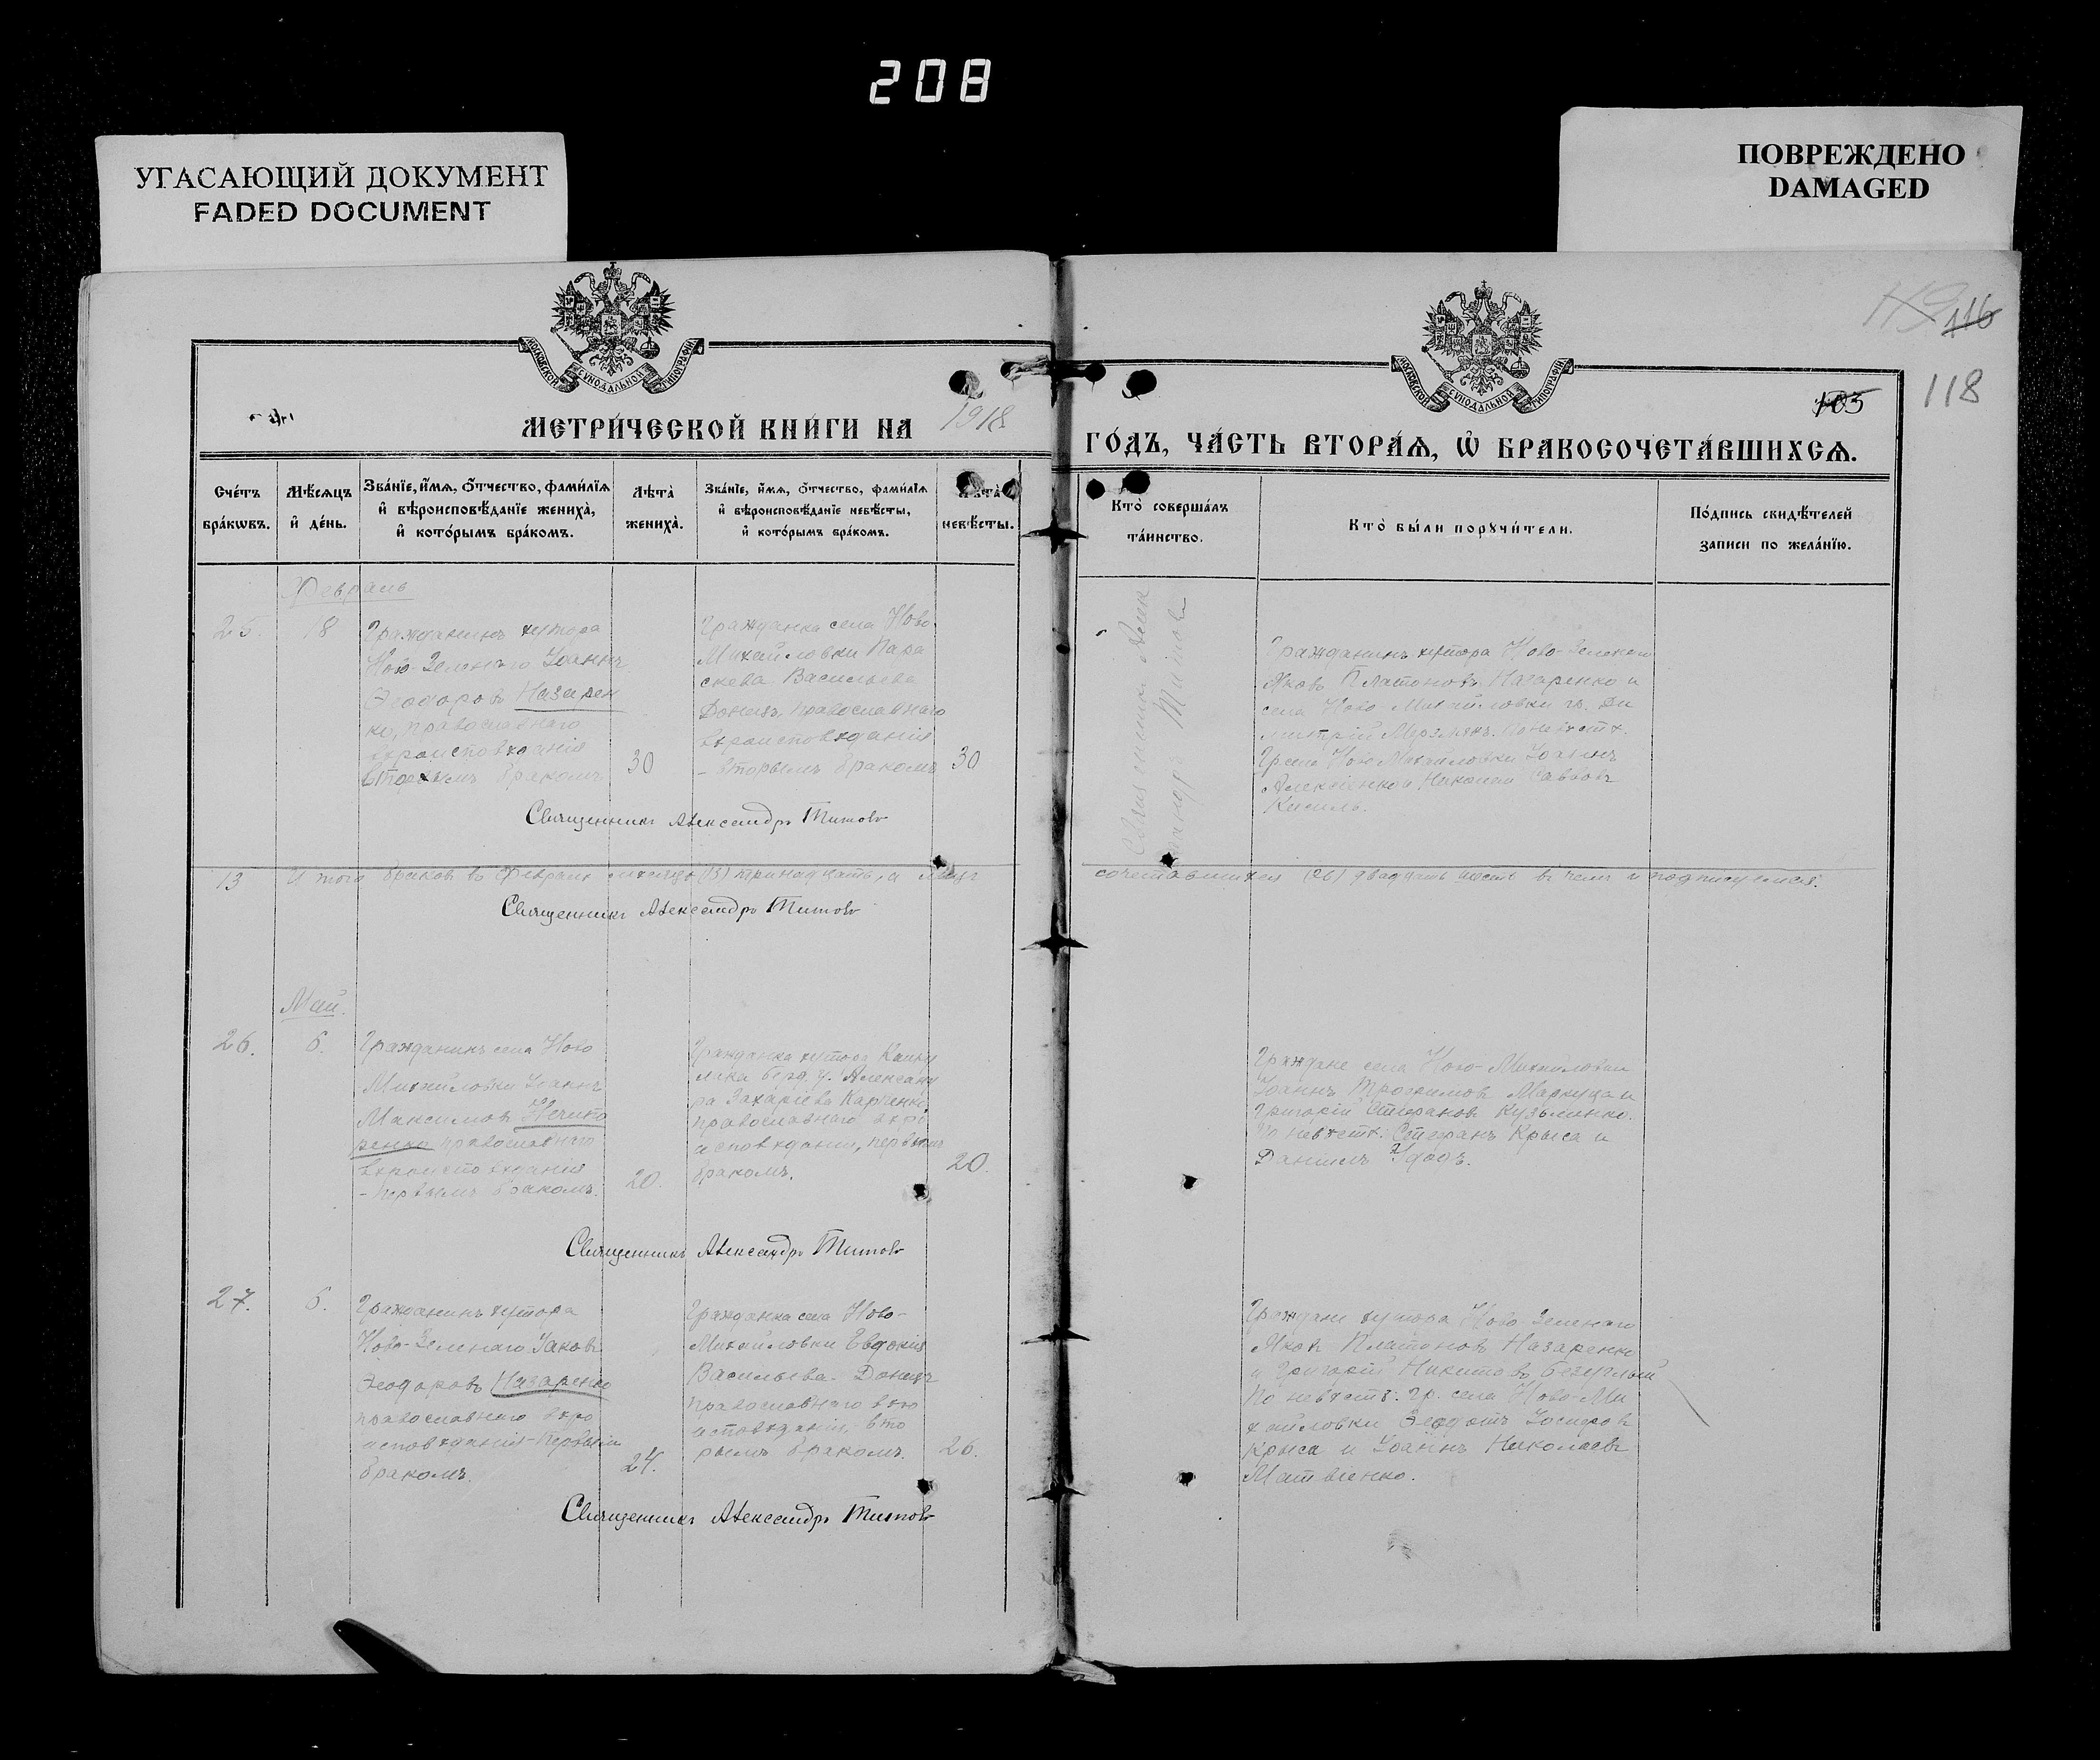 208
УГАСАЮЩИЙ ДОКУМЕНТ
FADED DOCUMENT
ПОВРЕЖДЕНО
DAMAGED
МОСКОВСКОЙ СѴНОДАЛЬНОЙ ТИПОГРАФІИ
МОСКОВСКОЙ СѴНОДАЛЬНОЙ ТИПОГРАФІИ
116
105
118
МЕТРИ́ЧЕСКОЙ КНИ́ГИ НА 1918
ГО́ДЪ, ЧА́СТЬ ВТОРА́Ѧ, Ѽ БРАКОСОЧЕТА́ВШИХСѦ.
Сче́тъ бра́кѡвъ.
Мѣ́сяцъ и҆ де́нь.
Зва́нїе, и҆́мѧ, ѻ҆́тчество, фами́лїѧ
и҆ вѣроисповѣ́данїе жениха̀,
и҆ кото́рымъ бра́комъ.
Лѣта̀ жениха̀.
Зва́нїе, и҆́мѧ, ѻ҆́тчество, фами́лїѧ
и҆ вѣроисповѣ́данїе невѣ́сты,
и҆ кото́рымъ бра́комъ.
Лѣта̀ невѣ́сты.
Кто̀ соверша́лъ та́инство.
Кто̀ бы́ли порꙋчи́тели.
По́дпись свидѣ́телей
записи по жела́нїю.
Февраль
25.
18
Гражданинъ хутора
Ново-Зеленаго Іоаннъ
Ѳеодоровъ Назарен
ко, православнаго
вѣроисповѣданія
вторымъ бракомъ
30
Гражданка села Ново
Михайловки Пара
скева Васильева
Донецъ, православнаго
вѣроисповѣданія
- вторымъ бракомъ
30
Священникъ Алек
сандръ Титовъ
Гражданинъ хутора Ново-Зеленаго
Яковъ Платоновъ Назаренко и
села Ново-Михайловки гр. Ди
митрій по невѣстѣ.
Гр. села Ново Михайловки Іоаннъ
Алексѣенко и Николай Саввовъ
Кисиль.
Священникъ Александръ Титовъ
13
Итого браковъ въ Февралѣ мѣсяцѣ (13) тринадцать, а лицъ
сочетавшихся (26) двадцать шесть въ чемъ и подписуемся:
Священникъ Александръ Титовъ
Май.
26.
6.
Гражданинъ села Ново
Михайловки Іоаннъ
Максимовъ Нечипо
ренко православнаго
вѣроисповѣданія
- первымъ бракомъ.
20.
Гражданка хутора
Берд. у. Александ
ра Захаріева Карпенко,
православнаго вѣро
исповѣданія, первымъ
бракомъ.
20.
Граждане села Ново-Михайловки
Іоаннъ Трофимовъ Маркуца и
Григорій Стефановъ Кузьменко.
По невѣстѣ: Стефанъ Крыса и
Даніилъ Удодъ.
Священникъ Александръ Титовъ
27.
6.
Гражданинъ хутора
Ново-Зеленаго Іаковъ
Ѳеодоровъ Назаренко
православнаго вѣро
исповѣданія - первымъ
бракомъ.
24.
Гражданка села Ново-
Михайловки Евдокія
Васильева Донецъ
православнаго вѣро
исповѣданія, - вто
рымъ бракомъ.
26.
Граждане хутора Ново-Зеленаго
Яковъ Платоновъ Назаренко
и Григорій Никитовъ Безуглый
По невѣстѣ: гр. села Ново-Ми
хайловки Ѳеодотъ Іосифовъ
Крыса и Іоаннъ Николаевъ
Матвіенко.
Священникъ Александръ Титовъ